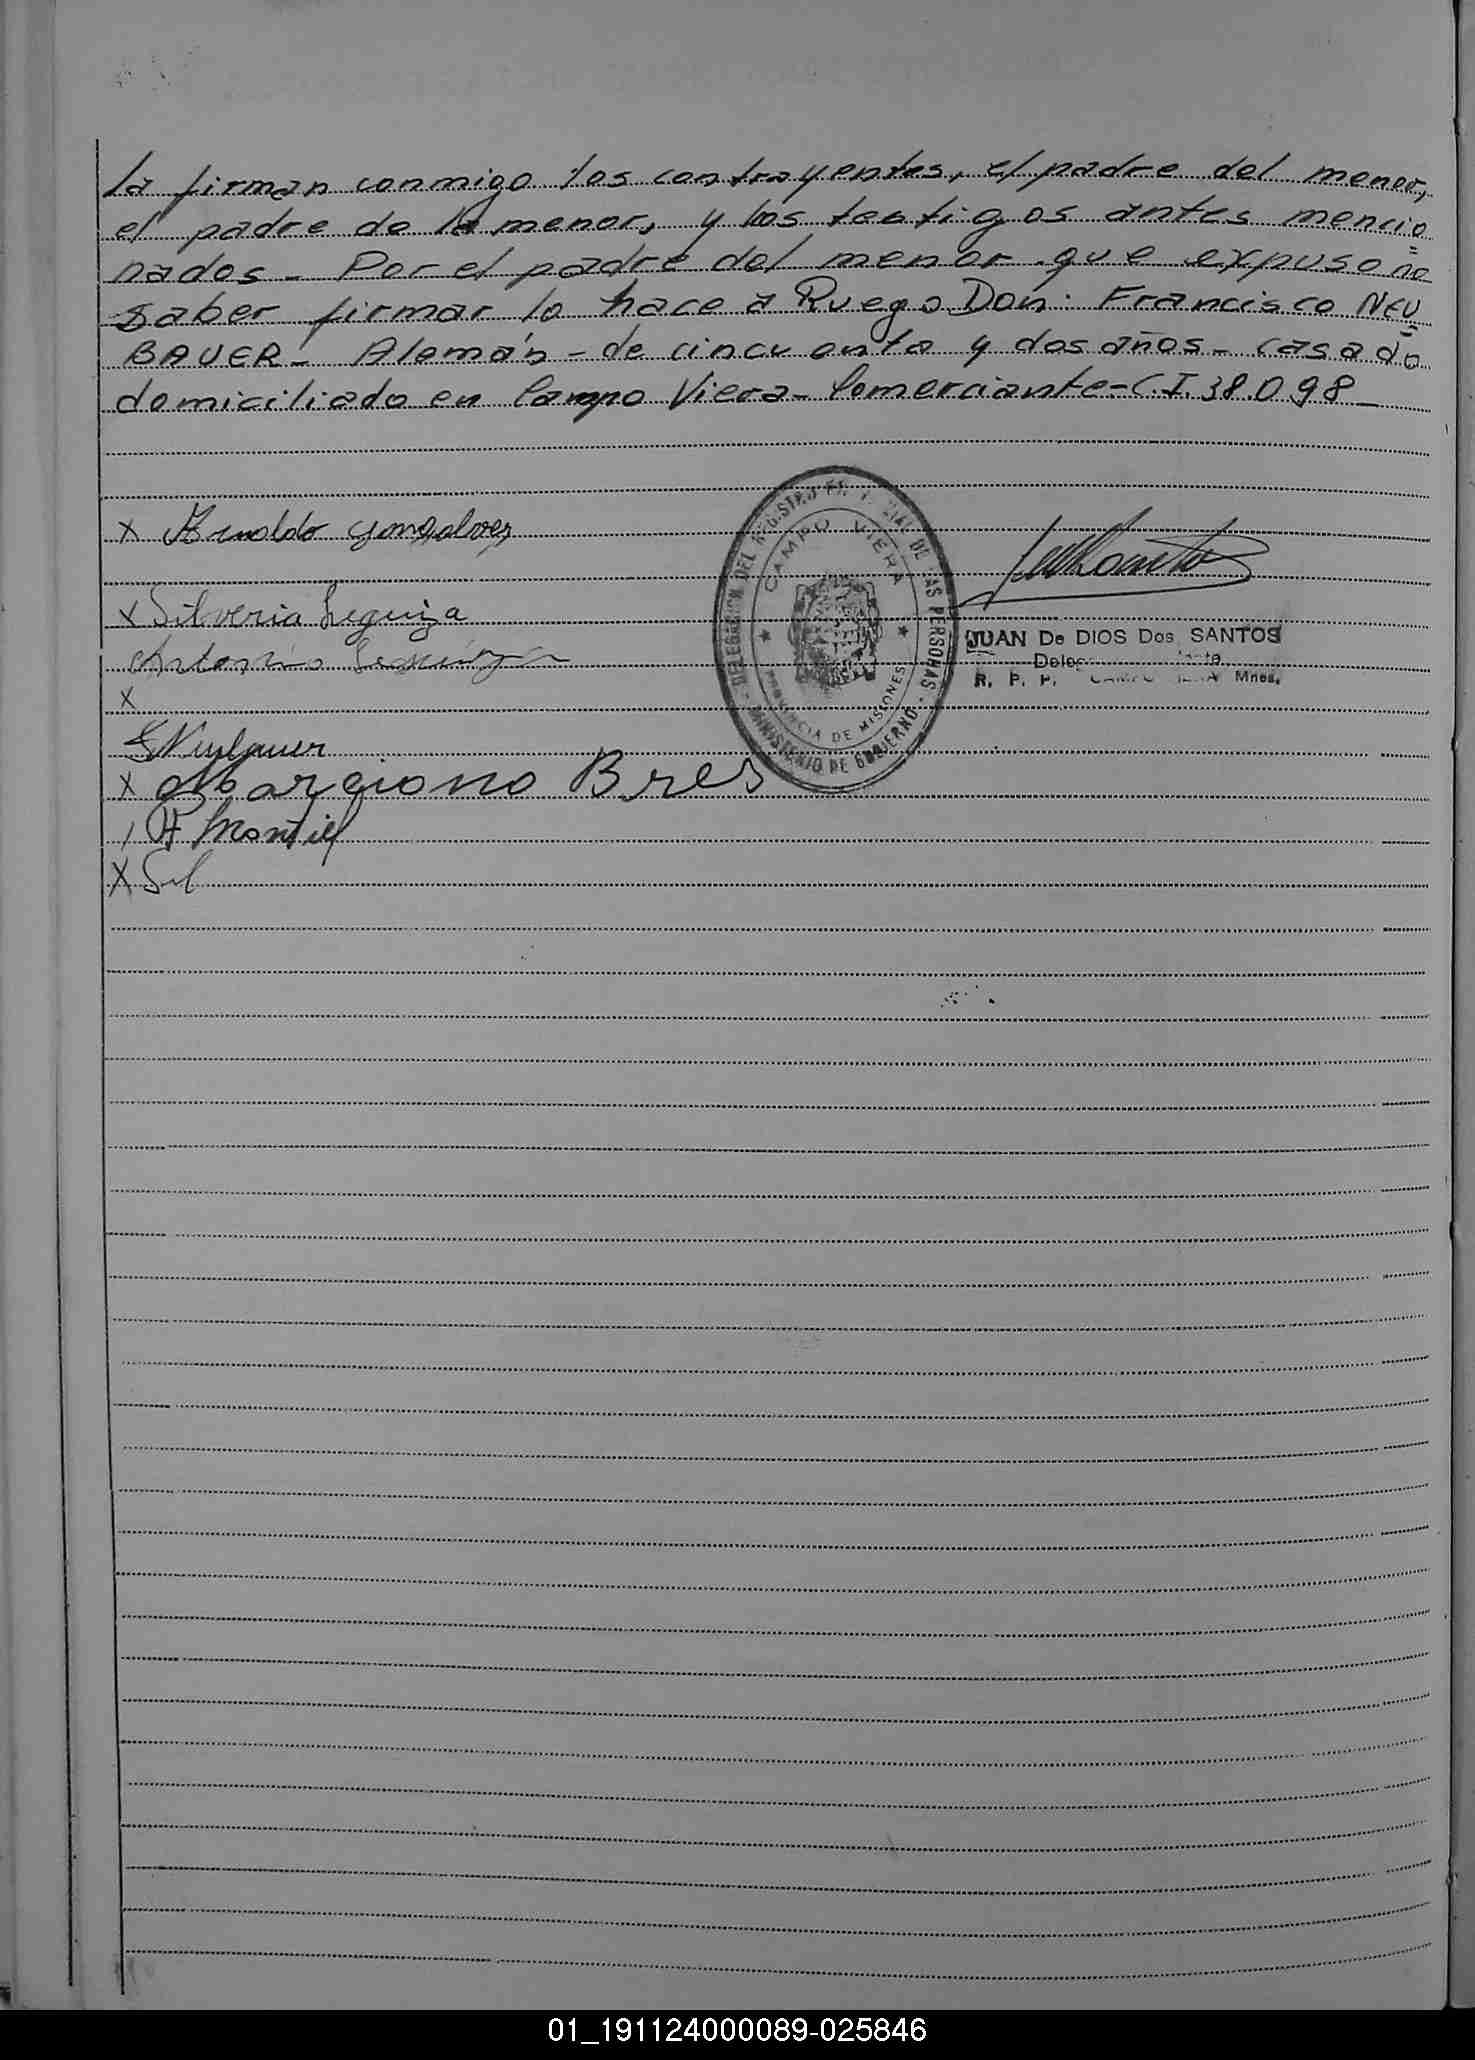 la firman conmigo los contrayentes, el padre del menor,
el padre de la menor, y los testigos antes mencio
nados - Por el padre del menor que expuso no
saber firmar lo hace a Ruego Don: Francisco NEU
BAUER - Alemán - de cincuenta y dos años - casado
domiciliado en Campo Viera - Comerciante - C.I. 38.098
X Arnoldo Gonçalves
X Silveria Leguiza
Antonio
X
X Marciano Bres
Montiel
X
DELEGACION DEL REGISTRO PROVINCIAL DE LAS PERSONAS
CAMPO VIERA
PROVINCIA DE MISIONES
MINISTERIO DE GOBIERNO
JUAN De DIOS Dos SANTOS
R. P. P. Mnes.
01_191124000089-025846